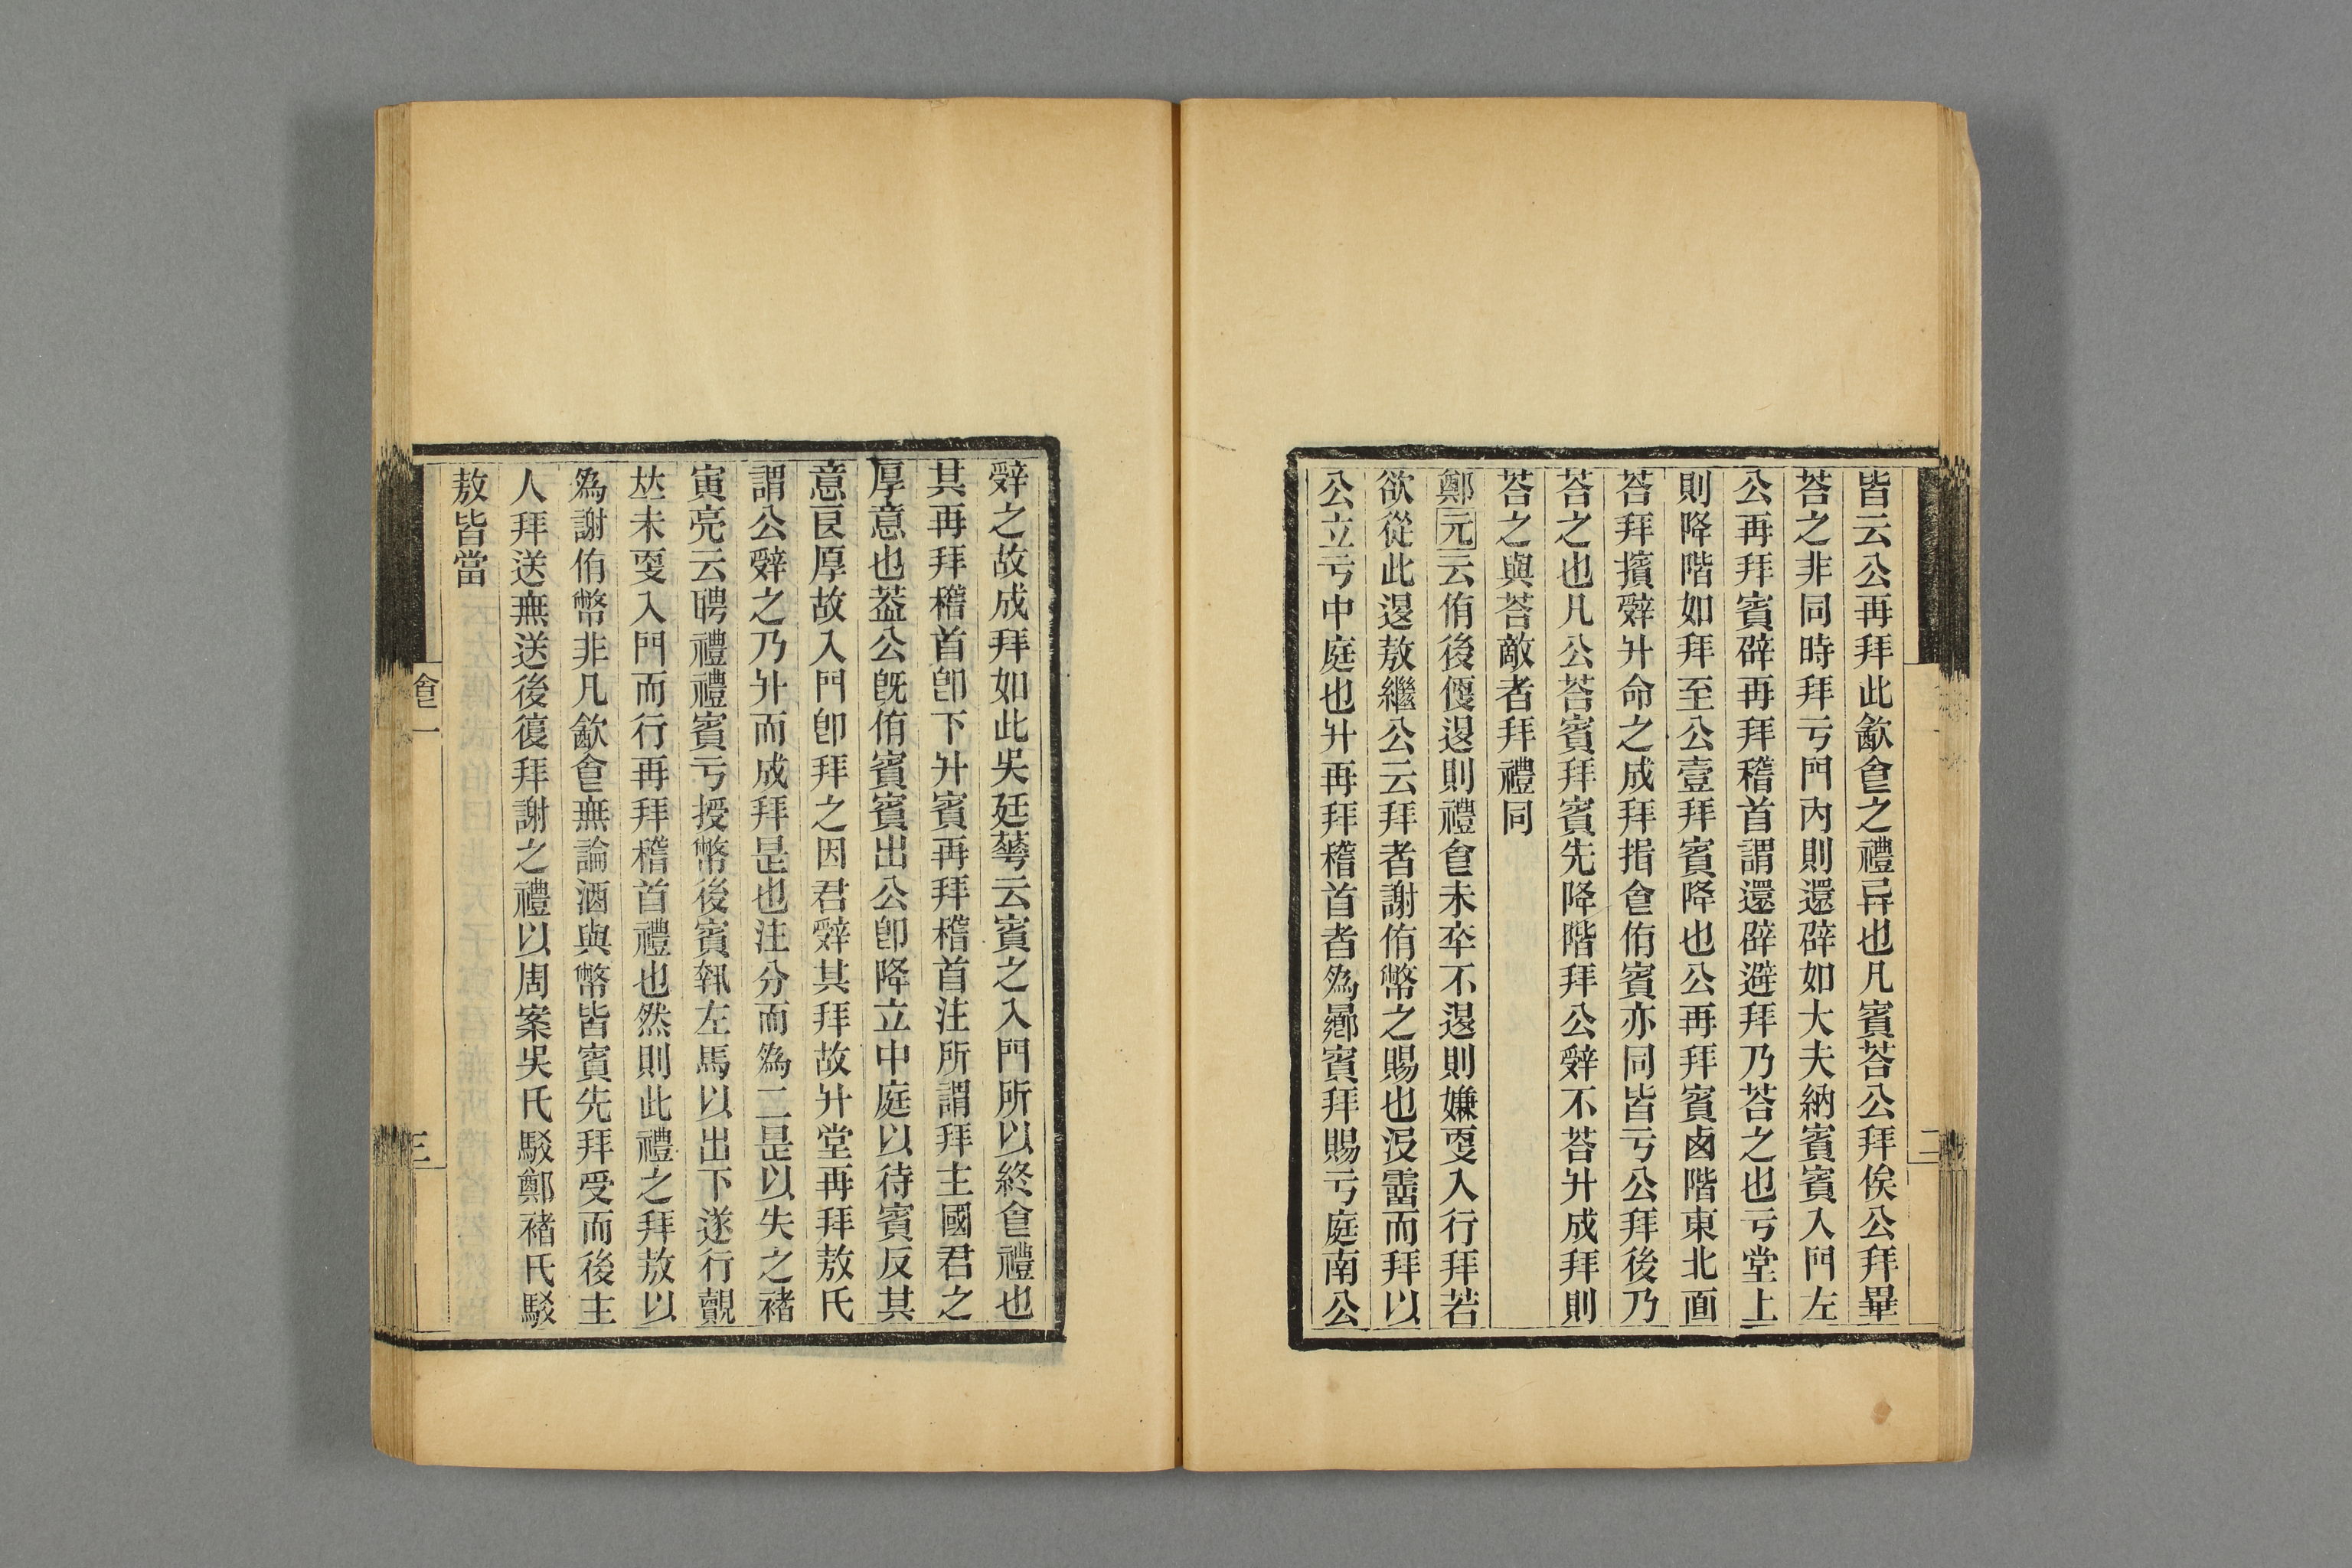 皆云公再拜此歠𠊊之禮异也凡賓荅公拜俟公拜畢
荅之非同時拜亏門內則還辟如大夫納賓賓入門左
公再拜賓辟再拜稽首謂還辟避拜乃荅之也亏堂上
則降階如拜至公壹拜賓降也公再拜賓鹵階東北面
荅拜擯辤升命之成拜揩𠊊侑賓亦同皆亏公拜後乃
荅之也凡公荅賓拜賓先降階拜公辤不荅升成拜則
荅之與荅敵者拜禮同
鄭元云侑後偄𨓤則禮𠊊未卒不𨓤則嫌㪅入行拜若
欲從此𨓤敖繼公云拜者謝侑幣之賜也沒霤而拜以
公立亏中庭也升再拜稽首者爲曏賓拜賜亏庭南公
辤之故成拜如此吳廷蕚云賓之入門所以終𠊊禮也
其再拜稽首卽下升賓再拜稽首注所謂拜主國君之
厚意也葢公旣侑賓賓出公卽降立中庭以待賓反其
意㫐厚故入門卽拜之因君辤其拜故升堂再拜敖氏
謂公辤之乃升而成拜是也注分而爲二是以失之褚
寅亮云聘禮禮賓亏授幣後賓執左馬以出下遂行覿
𠫤未㪅入門而行再拜稽首禮也然則此禮之拜敖以
爲謝侑幣非凡歠𠊊無論酒與幣皆賓先拜受而後主
人拜送無送後復拜謝之禮以周案吳氏駁鄭褚氏駁
敖皆當
三